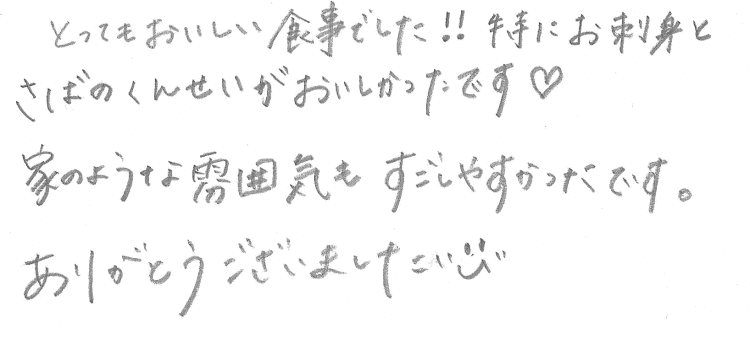 とってもおいしい食事でした!! 特にお刺身と
さばのくんせいがおいしかったです♡
家のような雰囲気も すごしやすかったです。
ありがとうございました